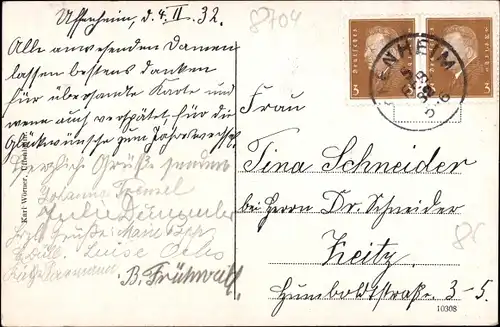 8704
Uffenheim, d. 4. II. 32.
Alle anwesenden Damen
lassen bestens danken
für übersandte Karte und
wenn auch verspätet für die
Glückwünsche zum Jahreswechsel.
Herzliche Grüße senden
Johanna
Julie
Grüße Marie
Luise
B. Frühwald
Karl Wörner,
Deutsches Reich
3
Deutsches Reich
3
ENHEIM
Frau
Tina Schneider
bei Herrn Dr. Schneider
Zeitz
Humboldtstraße 3-5.
10308